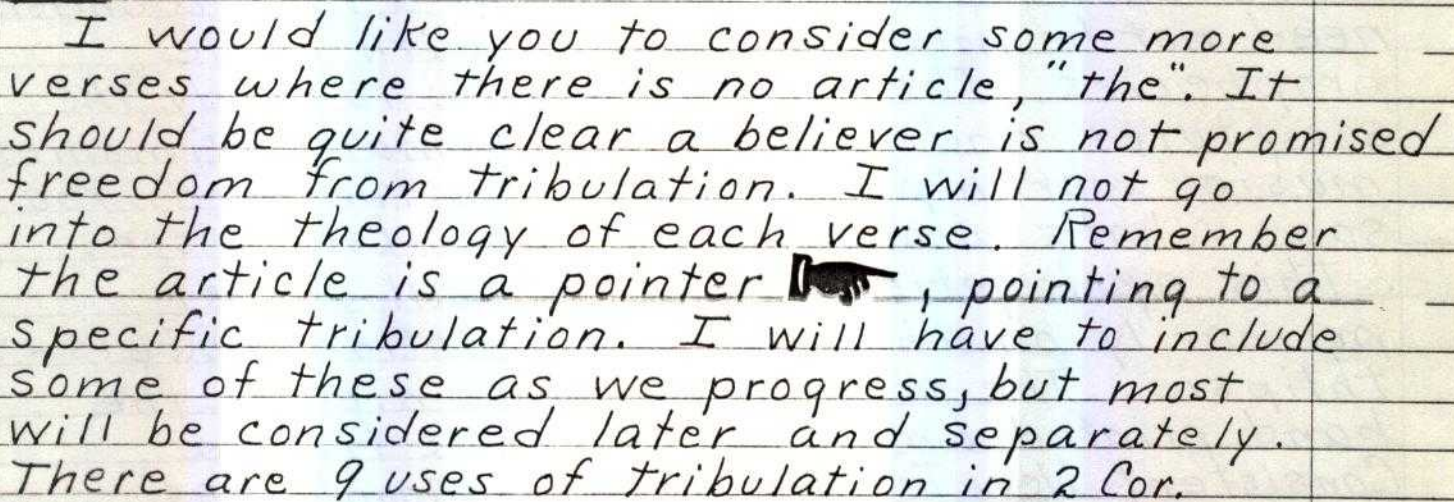 I would like you to consider some more
verses where there is no article, "the". It
should be quite clear a believer is not promised
freedom from tribulation. I will not go
into the theology of each verse. Remember
the article is a pointer , pointing to a
specific tribulation. I will have to include
some of these as we progress, but most
will be considered later and separately.
There are 9 uses of tribulation in 2 Cor.